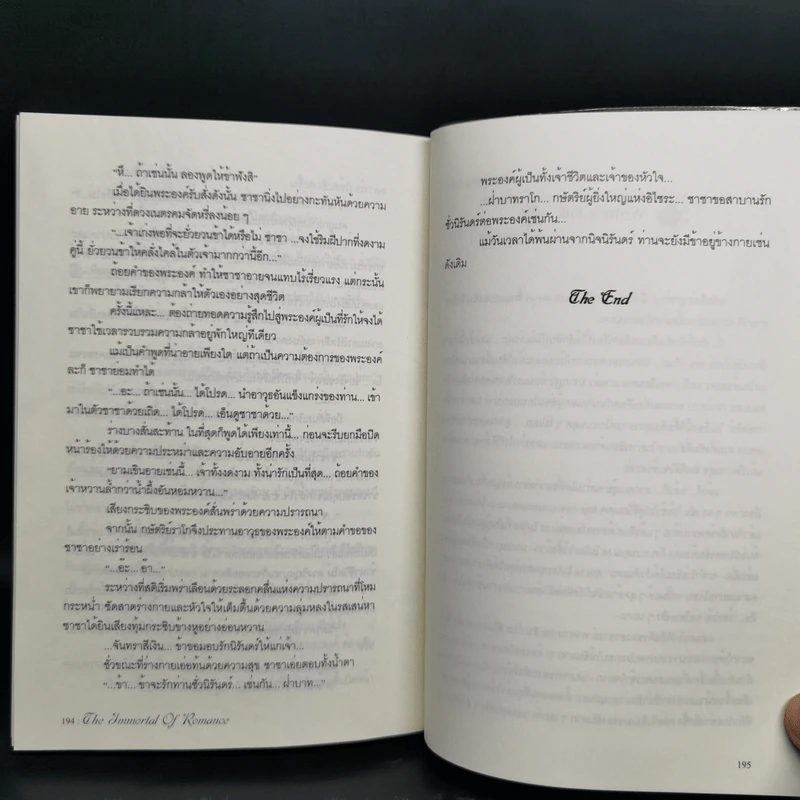 “หึ... ถ้าเช่นนั้น ลองพูดให้ข้าฟังสิ”
เมื่อได้ยินพระองค์รับสั่งดังนั้น ซาซานิ่งไปอย่างกะทันหันด้วยความ
อาย ระหว่างที่ดวงเนตรคมจัดหรี่ลงน้อย ๆ
“...เจ้าเก่งพอที่จะยั่วยวนข้าได้หรือไม่ ซาซา ...จงใช้ริมฝีปากที่งดงาม
คู่นี้ ยั่วยวนข้าให้คลั่งไคลในตัวเจ้ามากกว่านี้อีก...”
ถ้อยคำของพระองค์ ทำให้ซาซาอายจนแทบไร้เรี่ยวแรง แต่กระนั้น
เขาก็พยายามเรียกความกล้าให้ตัวเองอย่างสุดชีวิต
ครั้งนี้แหละ... ต้องถ่ายทอดความรู้สึกไปสู่พระองค์ผู้เป็นที่รักให้จงได้
ซาซาใช้เวลารวบรวมความกล้าอยู่พักใหญ่ทีเดียว
แม้เป็นคำพูดที่น่าอายเพียงใด แต่ถ้าเป็นความต้องการของพระองค์
ละก็ ซาซาย่อมทำได้
“...อะ... ถ้าเช่นนั้น... ได้โปรด... นำอาวุธอันแข็งแกร่งของท่าน... เข้า
มาในตัวซาซาด้วยเถิด... ได้โปรด... เอ็นดูซาซาด้วย...”
ร่างบางสั่นสะท้าน ในที่สุดก็พูดได้เพียงเท่านี้... ก่อนจะรีบยกมือปิด
หน้าร้องไห้ด้วยความประหม่าและความอับอายอีกครั้ง
“ยามเขินอายเช่นนี้... เจ้าทั้งงดงาม ทั้งน่ารักเป็นที่สุด... ถ้อยคำของ
เจ้าหวานล้ำกว่าน้ำผึ้งอันหอมหวาน...”
เสียงกระซิบของพระองค์สั่นพร่าด้วยความปรารถนา
จากนั้น กษัตริย์ราโกจึงประทานอาวุธของพระองค์ให้ตามคำขอของ
ซาซาอย่างเร่าร้อน
“...อ๊ะ... อ๊า...”
ระหว่างที่สติเริ่มพร่าเลือนด้วยระลอกคลื่นแห่งความปรารถนาที่โหม
กระหน่ำ ซัดสาดร่างกายและหัวใจให้เต็มตื้นด้วยความลุ่มหลงในรสเสน่หา
ซาซาได้ยินเสียงทุ้มกระซิบข้างหูอย่างอ่อนหวาน
...จันทราสีเงิน... ข้าขอมอบรักนิรันดร์ให้แก่เจ้า...
ชั่วขณะที่ร่างกายเอ่อท้นด้วยความสุข ซาซาเอ่ยตอบทั้งน้ำตา
“...ข้า... ข้าจะรักท่านชั่วนิรันดร์... เช่นกัน... ฝ่าบาท...”
194 : The Immortal Of Romance
พระองค์ผู้เป็นทั้งเจ้าชีวิตและเจ้าของหัวใจ...
...ฝ่าบาทราโก... กษัตริย์ผู้ยิ่งใหญ่แห่งอิโซระ... ซาซาขอสาบานรัก
ชั่วนิรันดร์ต่อพระองค์เช่นกัน...
แม้วันเวลาได้พ้นผ่านจากนิจนิรันดร์ ท่านจะยังมีข้าอยู่ข้างกายเช่น
ดังเดิม
The End
195